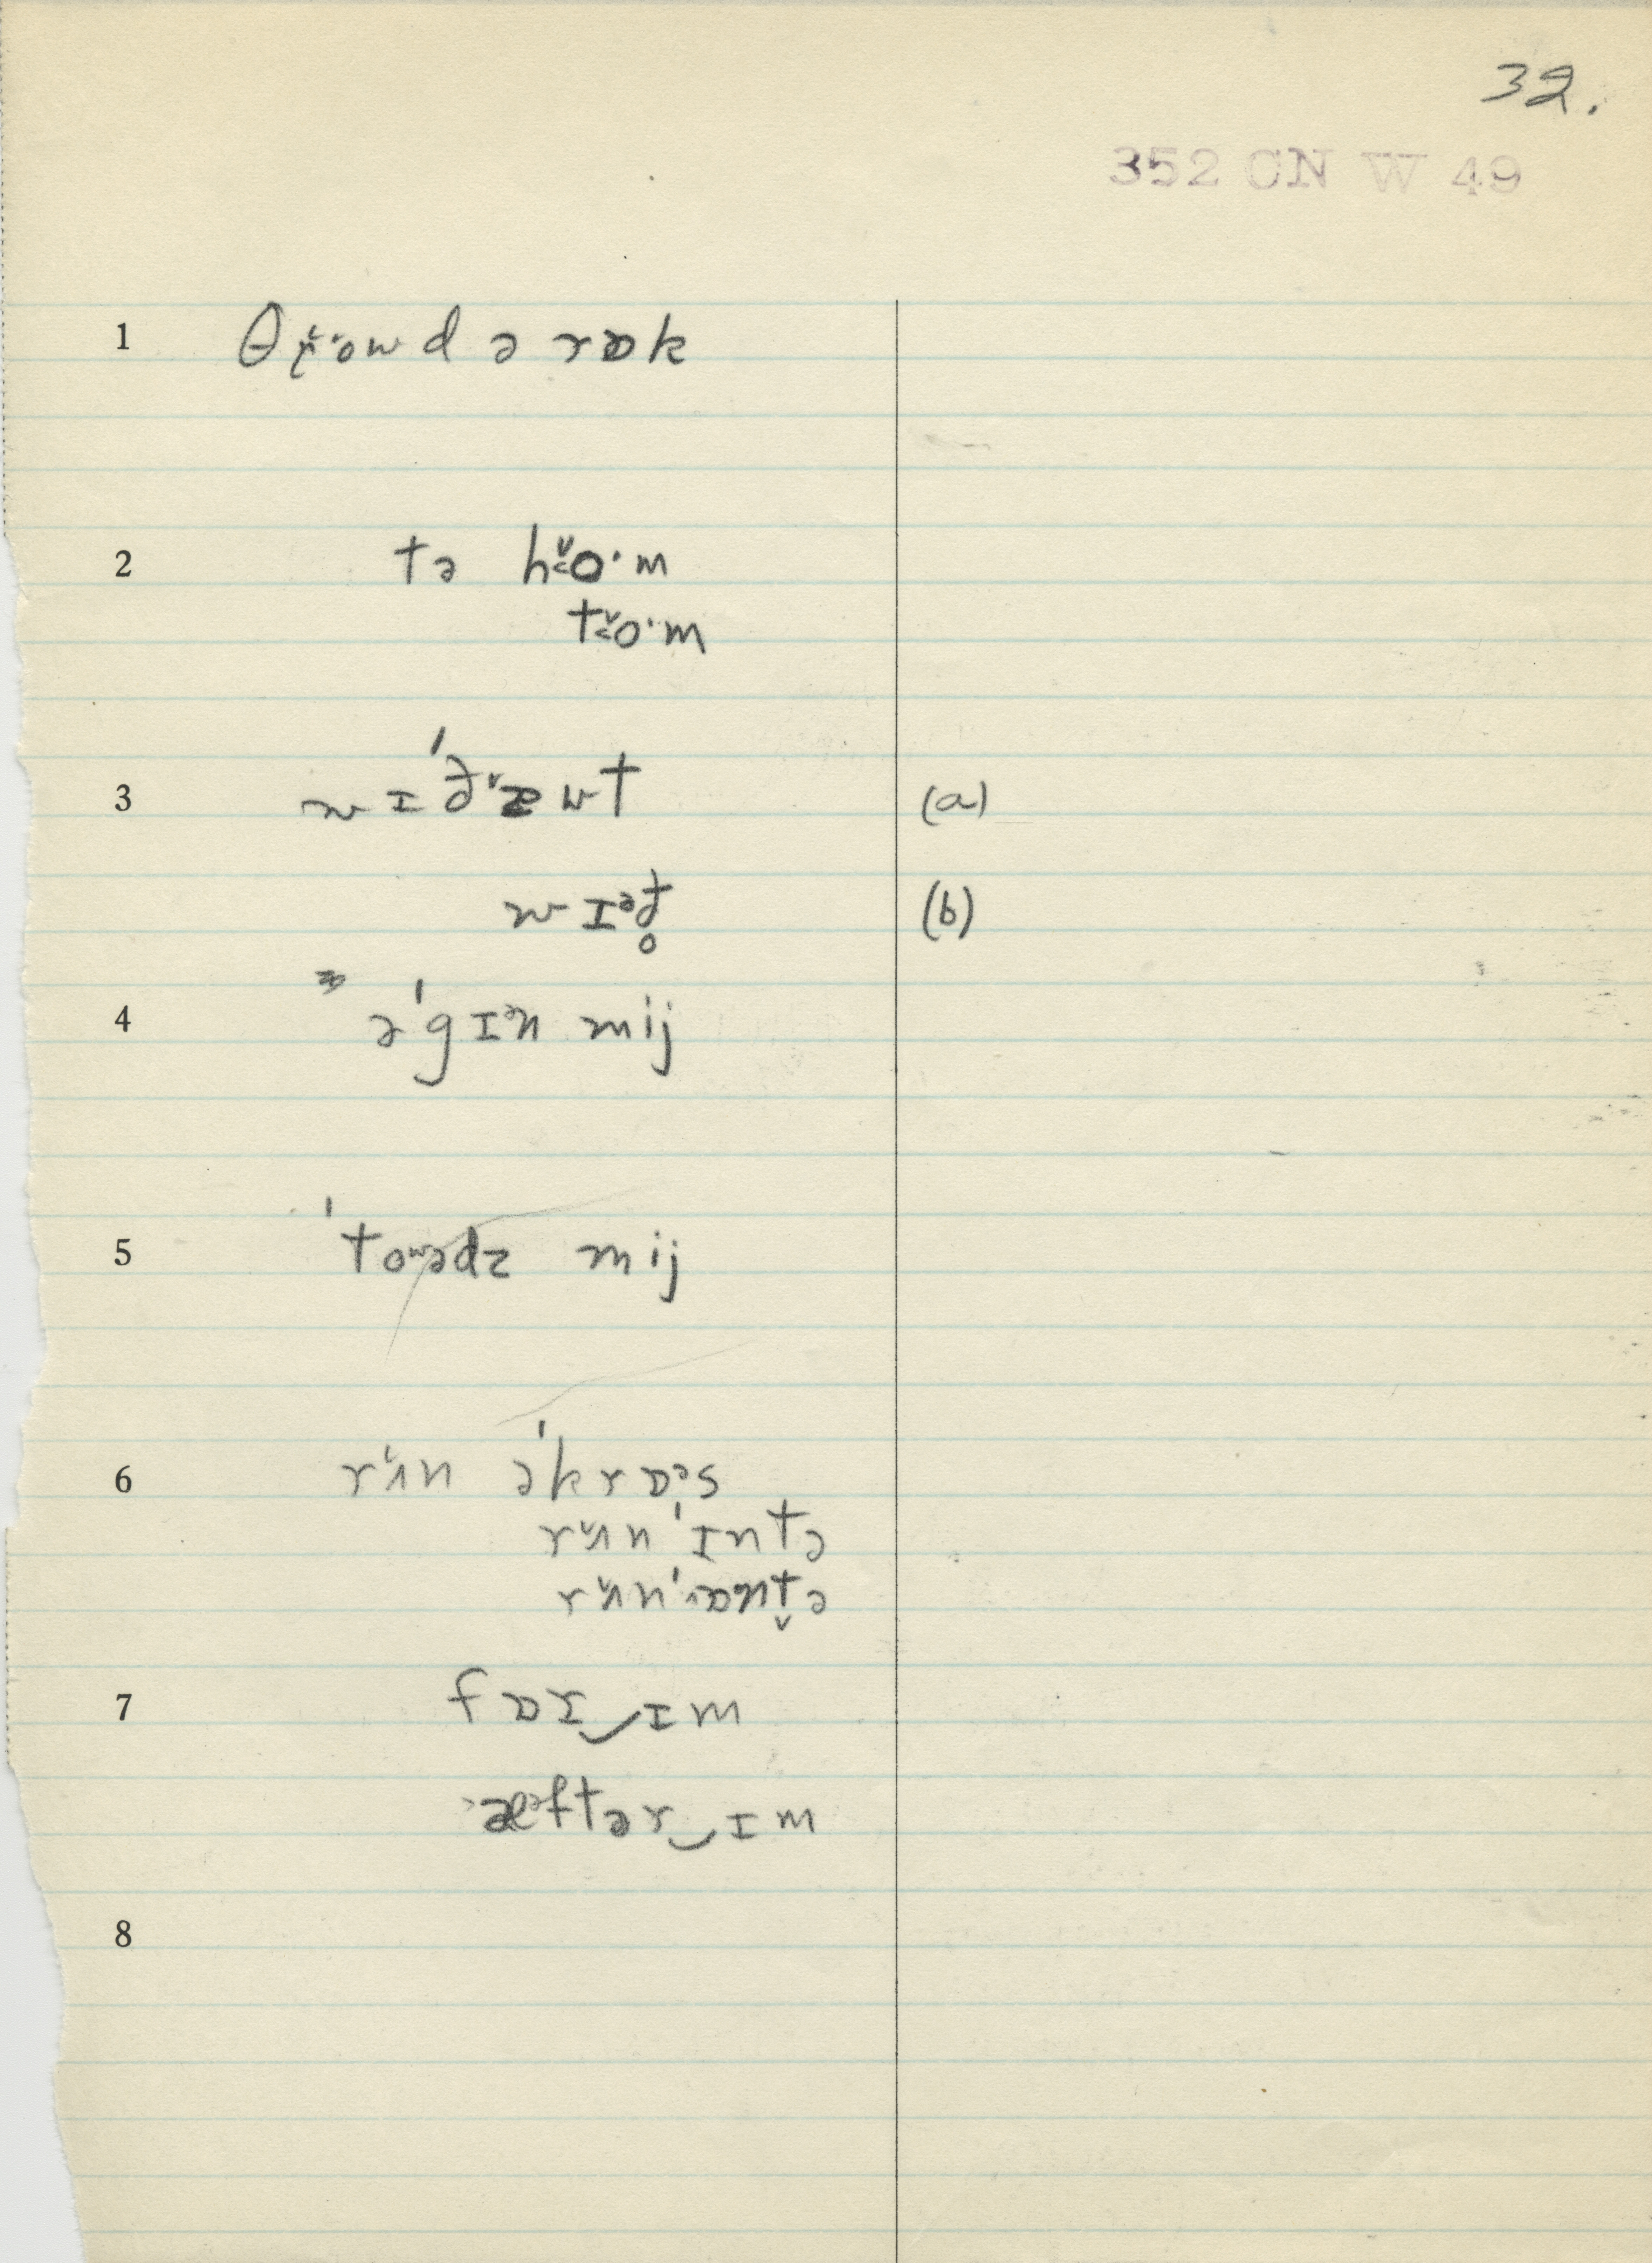 32.
352 CN W 49
1 θɾ̬ˇowd ə rɒk
2 tə hˇo·m
tˇo·m
3 wɪˈðˇæwt (a)
wɪᵊð̥ (b)
4 əˈgɪᵊn mij
5 ˈtowədz mij
6 rʌ̌n əˈkrɒᵊs
rʌ̌n ˈɪntə
rʌ̌n ˈɒnt̬ə
7 fɒr‿ɪm
æᵊftər‿ɪm
8